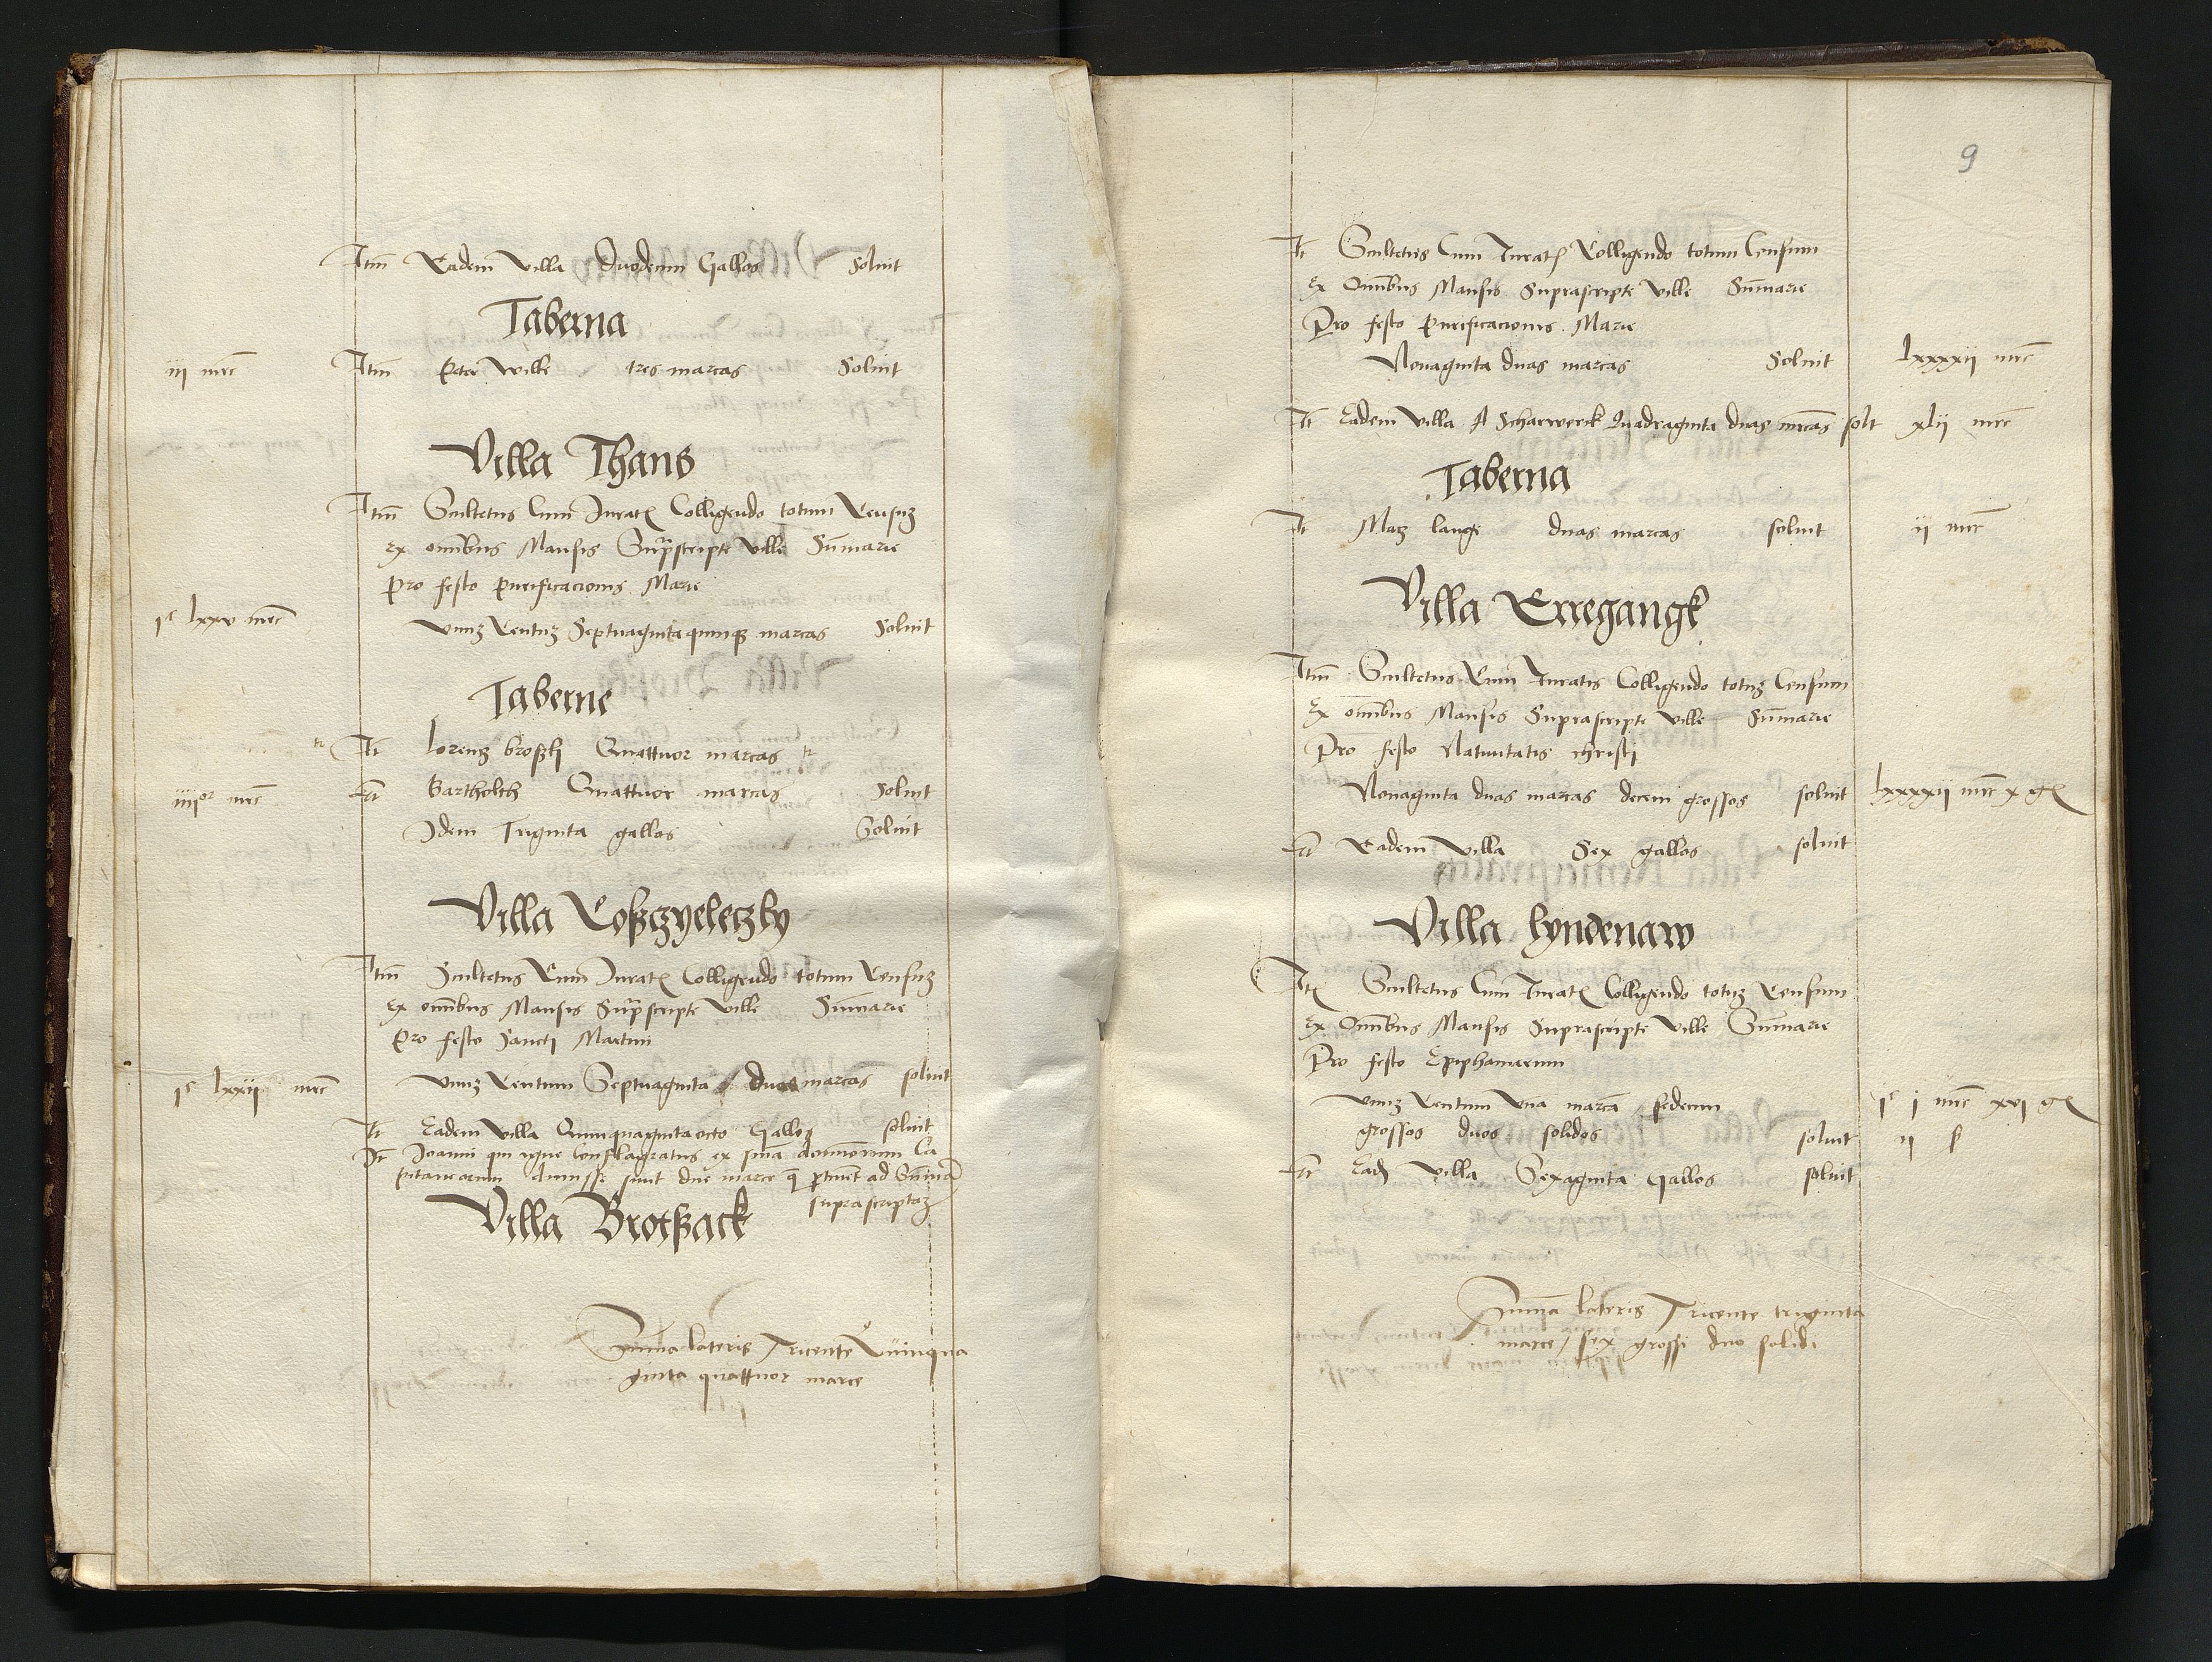 Itm Eadem Villa Duodecim Gallos Soluit
Taberna
iij mrc Itm Peter Wille tres marcas Soluit
Villa Thans
Itm Scultetus Cum Iurat Colligendo totum Censuz
Ex omnibus Mansis Suprascripte Ville Summarie
Pro festo Purificacionis Marie
jc lxxv mrc Vnuz Centuz Septuagintaquinqz marcas Soluit
Taberne
It Lorenz Quattuor marcas
iiijor mrc It Bartholch Quattuor marcas Soluit
Idem Triginta gallos Soluit
Villa Coßczyeleczky
Itm Scultetus Cum Iurat Colligendo totum Censuz
Ex omnibus Mansis Suprascripte Ville Summarie
Pro festo Sancti Martini
jc lxxij mrc Vnuz Centum Septuaginta duas marcas soluit
It Eadem Villa Quinquagintaocto Gallos soluit
It Ioanni qui igne Conflagratus ex summa dominorum Ca
pitaneorum dimisse sunt due marce q ptinent ad Summam
suprascriptaz
Villa Brotßack
Summa lateris Tricente Quinqua
ginta quattuor marce
9
It Scultetus Cum Iurat Colligendo totum Censum
Ex Omnibus Mansis Suprascripte Ville Summarie
Pro festo Purificacionis Marie
Nonaginta duas marcas Soluit lxxxxij mrc
It Eadem Villa A Scharwerck Quadraginta duas mrcas solt xlij mrc
Taberna
It Maz lange duas marcas soluit ij mrc
Villa Erregangk
Itm Scultetus Cum Iuratis Colligendo totuz Censum
Ex omnibus Mansis Suprascripte Ville Summarie
Pro festo Natiuitatis christi
Nonaginta duas marcas decem grossos soluit lxxxxij mrc x g
It Eadem Villa Sex gallos soluit
Villa Lyndenaw
Ite Scultetus Cum Iurat Colligendo totuz Censum
Ex Omnibus Mansis Suprascripte Ville Summarie
Pro festo Epiphaniarum
Vnuz Centum Vna marca sedecim jc j mrc xvj g
grossos duos solidos soluit ij ß
It Ead Villa Sexaginta Gallos soluit
Summa lateris Tricente triginta
marce / sex grossi duo solidi